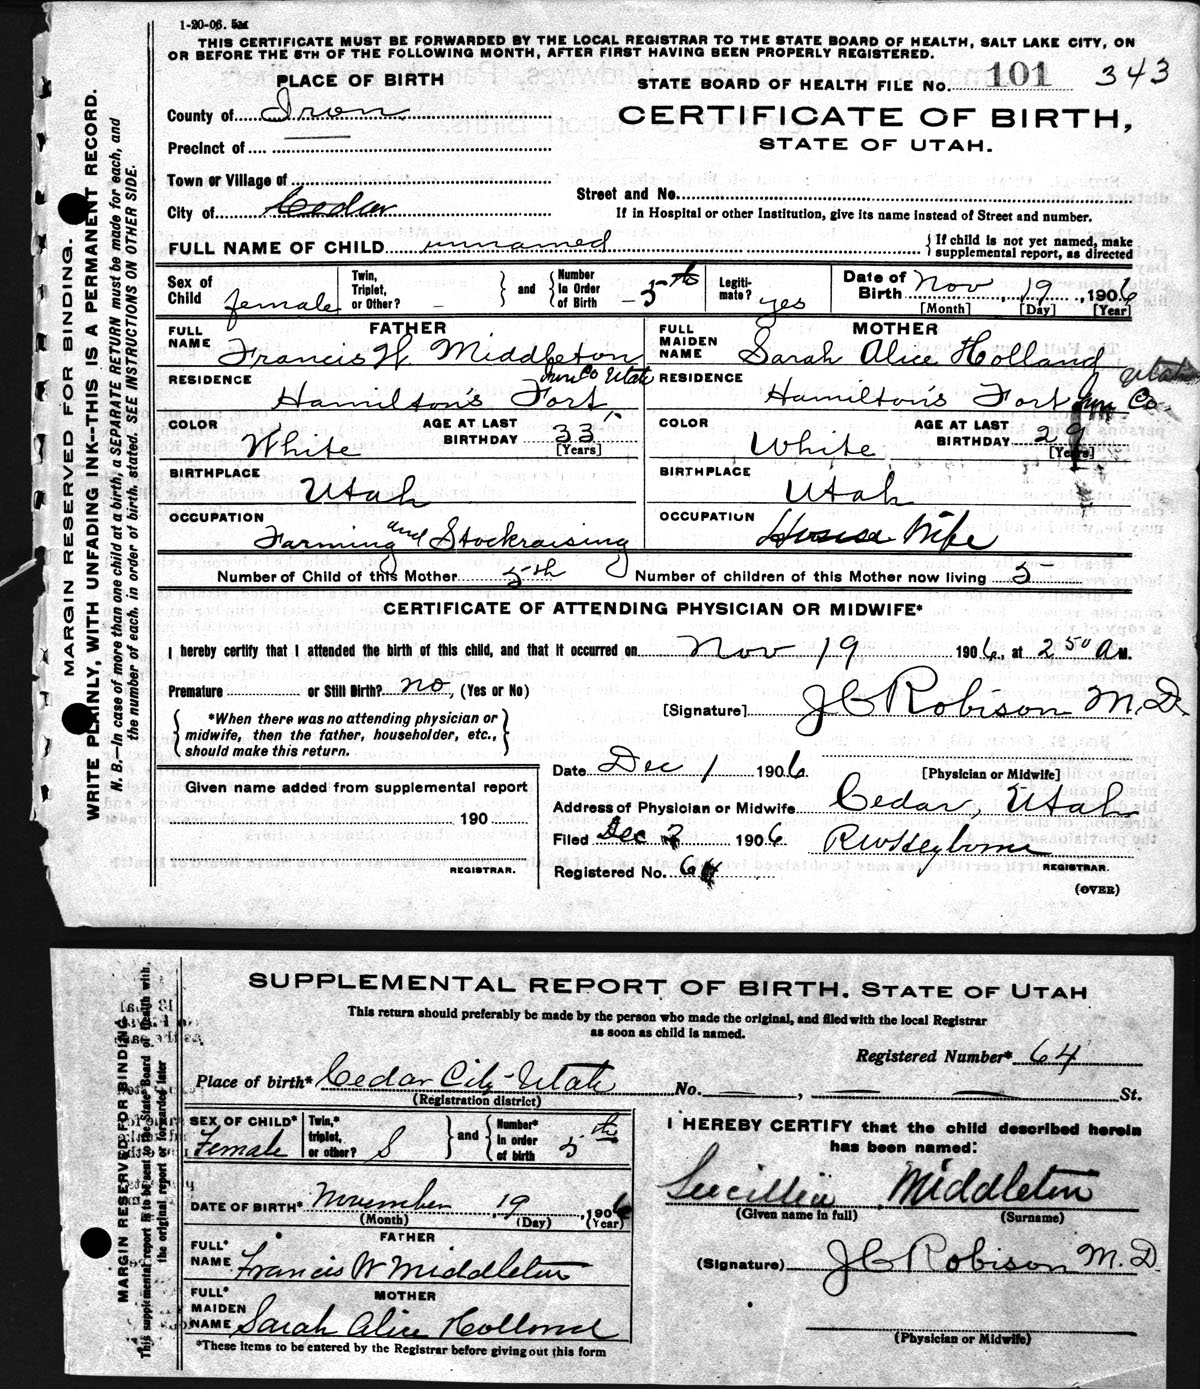 1-20-06. 5M
THIS CERTIFICATE MUST BE FORWARDED BY THE LOCAL REGISTRAR TO THE STATE BOARD OF HEALTH, SALT LAKE CITY, ON
OR BEFORE THE 5TH OF THE FOLLOWING MONTH, AFTER FIRST HAVING BEEN PROPERLY REGISTERED.
PLACE OF BIRTH
STATE BOARD OF HEALTH FILE No. 101 343
County of Iron
CERTIFICATE OF BIRTH,
STATE OF UTAH.
Precinct of
Town or Village of
Street and No.
City of Cedar
If in Hospital or other Institution, give its name instead of Street and number.
FULL NAME OF CHILD unnamed
{If child is not yet named, make
supplemental report, as directed
Sex of Child female
Twin, Triplet, or Other? –
and
Number In Order of Birth – 5th
Legiti-mate? yes
Date of Birth Nov, 19, 1906
[Month] [Day] [Year]
FATHER
MOTHER
FULL NAME Francis W. Middleton
FULL MAIDEN NAME Sarah Alice Holland
RESIDENCE Hamilton's Fort, Iron Co Utah
RESIDENCE Hamilton's Fort Iron Co. Utah
COLOR White
AGE AT LAST BIRTHDAY 33
[Years]
COLOR White
AGE AT LAST BIRTHDAY 29
[Years]
BIRTHPLACE Utah
BIRTHPLACE Utah
OCCUPATION Farming and Stockraising
OCCUPATION House Wife
Number of Child of this Mother 5th
Number of children of this Mother now living 5
CERTIFICATE OF ATTENDING PHYSICIAN OR MIDWIFE*
I hereby certify that I attended the birth of this child, and that it occurred on Nov 19 1906, at 2 50 A M.
Premature or Still Birth? no, (Yes or No)
[Signature] J C Robison M.D.
{*When there was no attending physician or
midwife, then the father, householder, etc.,
should make this return.}
Date Dec 1 1906.
[Physician or Midwife]
Given name added from supplemental report
190
Address of Physician or Midwife Cedar, Utah
Filed Dec 2 1906
REGISTRAR.
REGISTRAR.
Registered No. 64
(OVER)
MARGIN RESERVED FOR BINDING.
WRITE PLAINLY, WITH UNFADING INK--THIS IS A PERMANENT RECORD.
N. B.—In case of more than one child at a birth, a SEPARATE RETUERN must be made for each, and
the number of each. in order of birth. stated. SEE INSTRUCTIONS ON OTHER SIDE.
SUPPLEMENTAL REPORT OF BIRTH. STATE OF UTAH
This return should preferably be made by the person who made the original, and filed with the local Registrar
as soon as child is named.
Registered Number* 64
Place of birth* Cedar City Utah
No. , St.
(Registration district)
SEX OF CHILD* Female
Twin,* triplet, or other? S
and
Number* in order of birth 5th
I HEREBY CERTIFY that the child described herein
has been named:
DATE OF BIRTH* November, 19, 1906
(Month) (Day) (Year)
Middleton
(Given name in full) (Surname)
FATHER
FULL* NAME Francis W Middleton
(Signature) J C Robison M.D.
MOTHER
FULL* MAIDEN NAME Sarah Alice Holland
(Physician or Midwife)
*These items to be entered by the Registrar before giving out this form
MARGIN RESERVED FOR BINDING
This supplemental report is to be sent to the State Board of Health with,
the original report or forwarded later